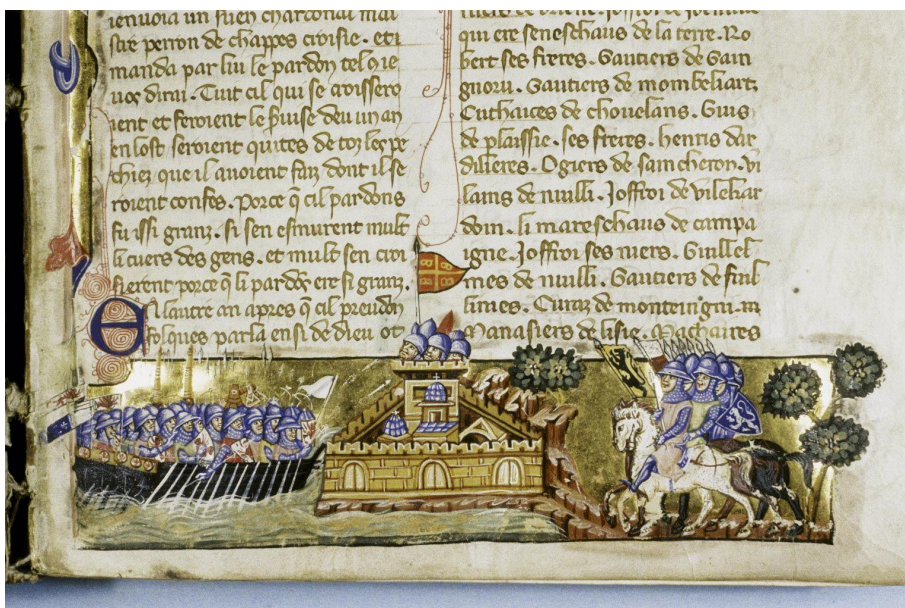 ienuoia un suen chardonal mai
stre perron de chappes croisie. et
manda par lui le pardon tel qͥe
uoꝫ dirai. Tuit cil qui se croissero
ient et feroient le seruise deu un an
en lost seroient quites de toz les pe
chiez que il auoient faiz dont il se
roient confes. Porce q̄ cil pardons
fu issi granz. si sen esmurent mult
li cuers des gens. et mult sen croi
sierent porce q̄ li pardōs ere si granz.
En lautre an apres q̄ cil preudon
folques parla ensi de dieu ot
qui ere seneschaus de la terre. Ro
bert ses freres. Gautiers de Gain
gnoru. Gautiers de mombeliart.
Euthaices de chouelans. Guis
de plaissie. ses freres. henris dar
dilieres. Ogiers de sain cheron. vi
lains de nuilli. Joffroi de vilehar
doin. li mareschaus de campa
igne. Joffroi ses niers. Guillel
mes de nuilli. Gautiers de fuil
lines. Curaz de monteingni. m
Manasiers de lisle. Machaires